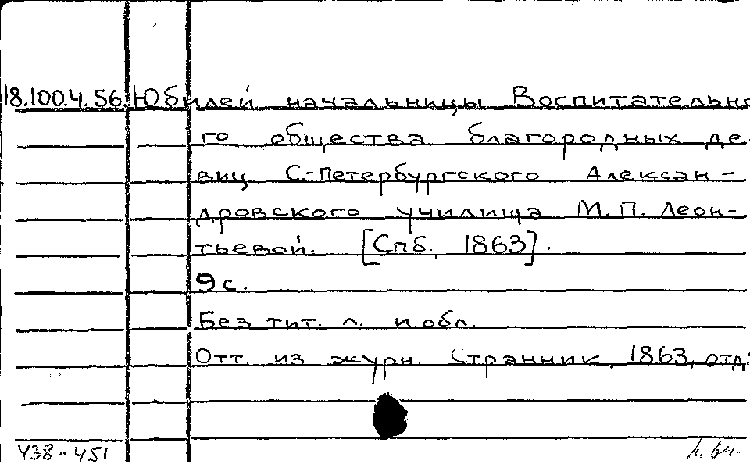 18.100.4.56 Юбилей начальницы Воспитательно
го общества благородных де-
виц С.-Петербургского Алексан-
дровского училища М.П. Леон-
тьевой. [Спб, 1863].
9 с.
Без тит. л. и обл.
Отт. из журн. Странник, 1863, отд.
У38-451